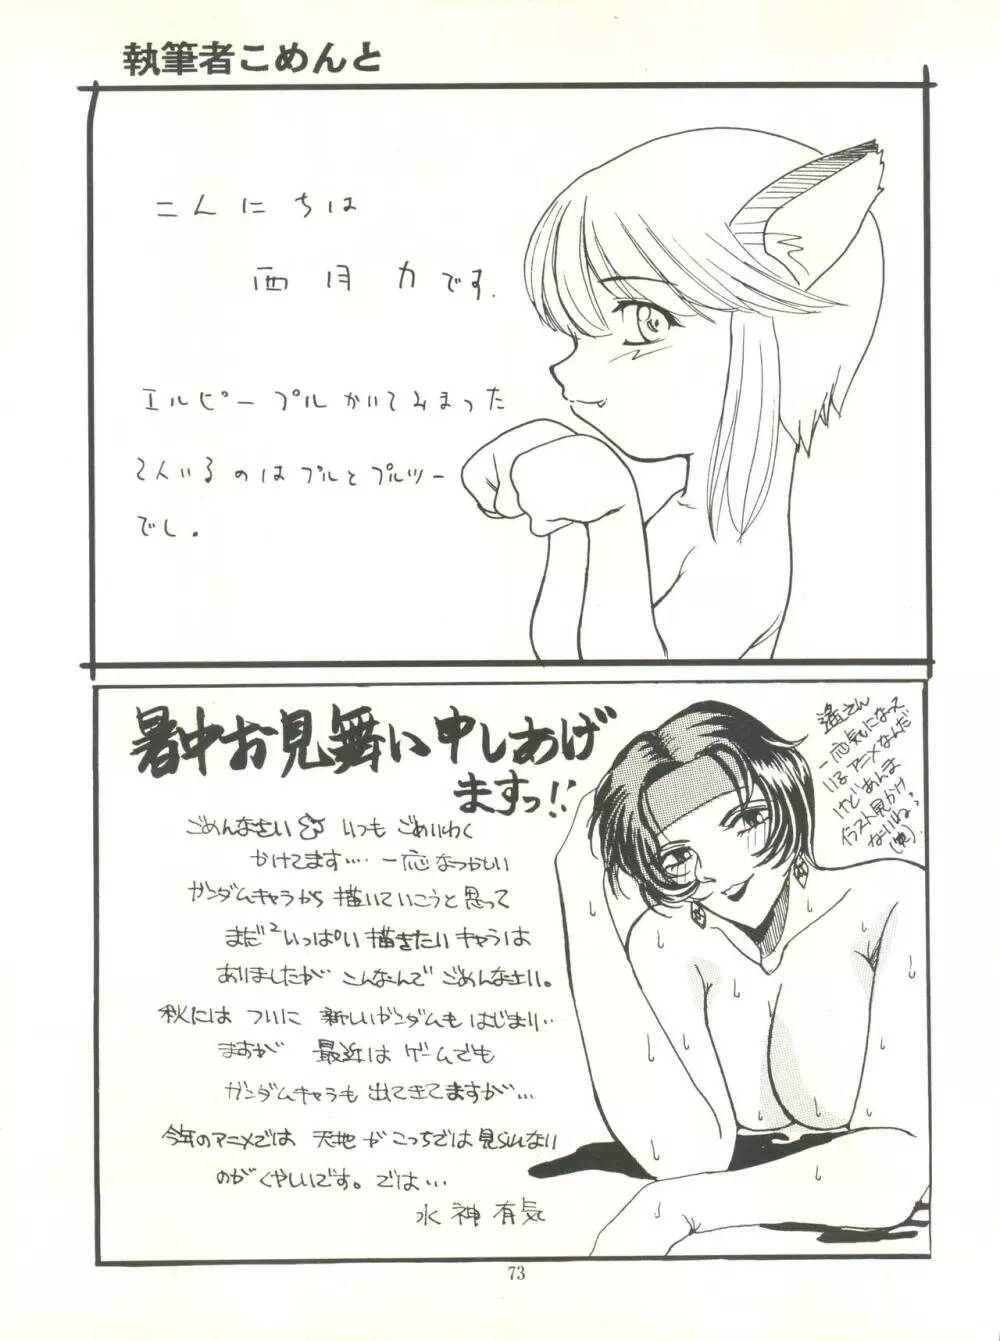 執筆者こめんと
こんにちは
西月力です.
エルピープルかいてみまった
2人いるのはプルとプルツー
でし。
暑中お見舞い申しあげ
ますっ!!
ごめんなさい いつも ごめいわく
かけてます… 一応なつかしい
ガンダムキャラから 描いていこうと思って
まだ²いっぱい描きたいキャラは
ありましたが こんなんで ごめんなさい。
秋には ついに 新しいガンダムも はじまり…
ますが 最近は ゲームでも
ガンダムキャラも 出てきてますが…
今年のアニメでは 天地がこっちでは見られない
のがくやしいです。では…
水神有気
遙さん
一応気になース
いるアニメなんだ
けどあんま
イラスト見かけ
ないね?
73